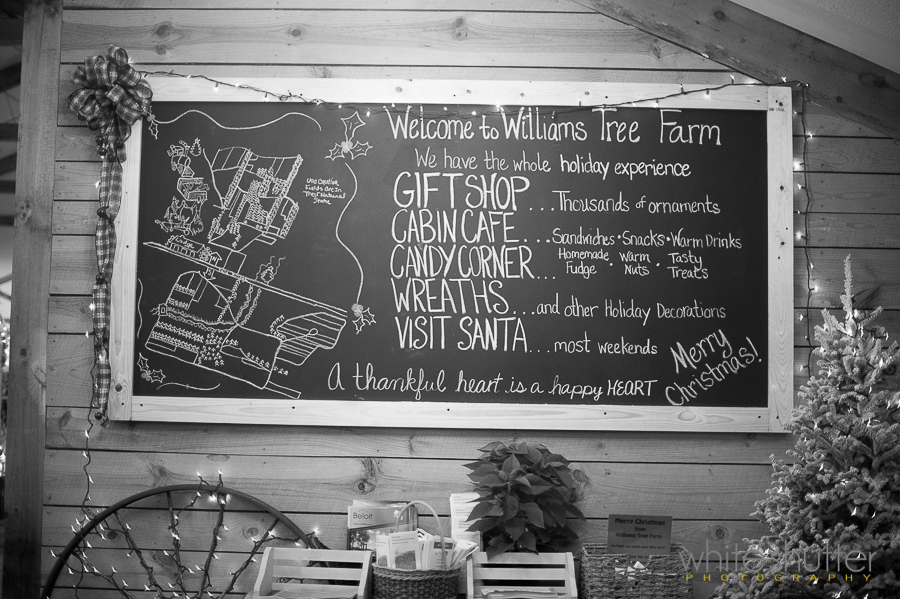 Welcome to Williams Tree Farm
We have the whole holiday experience
GIFT SHOP ... Thousands of ornaments
CABIN CAFE .... Sandwiches • Snacks • Warm Drinks
CANDY CORNER ... Homemade Fudge • Warm Nuts • Tasty Treats
WREATHS ... and other Holiday Decorations
VISIT SANTA ... most weekends
A thankful heart is a happy HEART
Merry
Christmas!
Fields Are In
Their Natural
State
Lodge
Beloit
Merry Christmas
from
Williams Tree Farm
white shutter
PHOTOGRAPHY